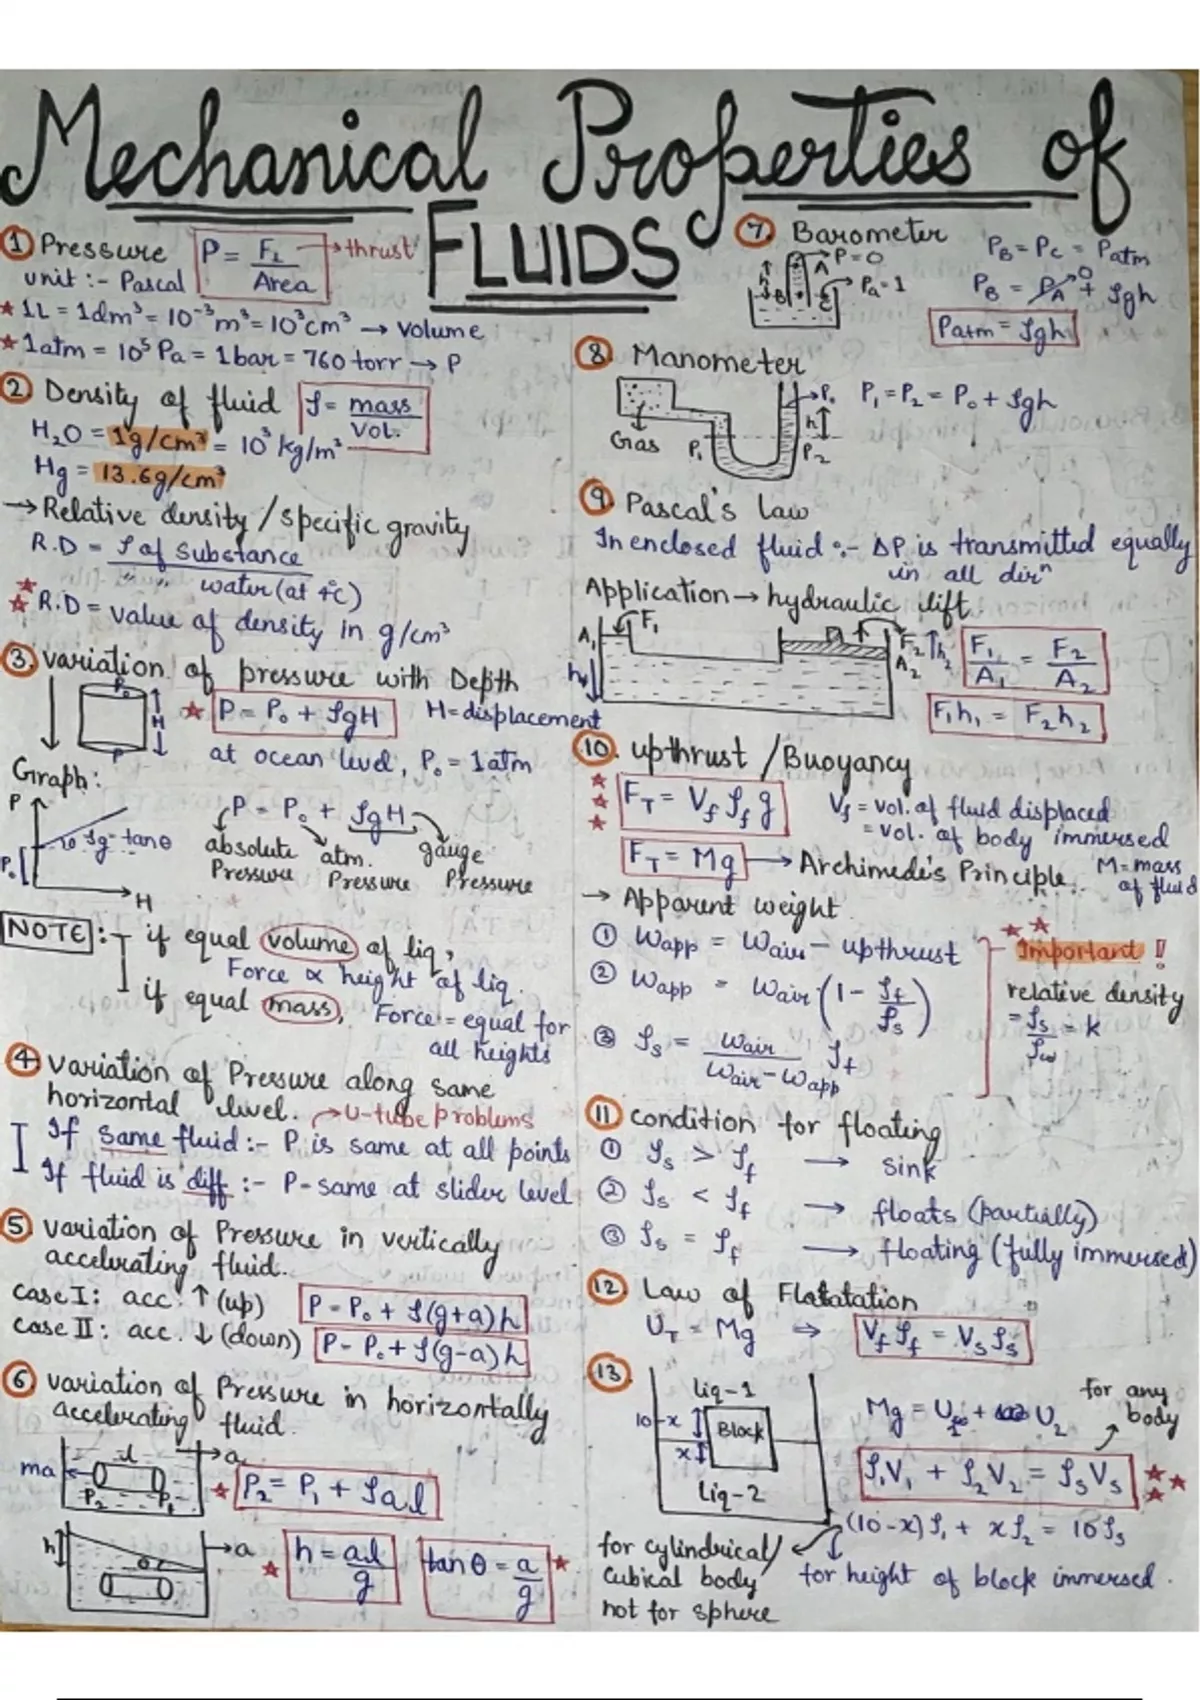 Mechanical Properties of
FLUIDS
① Pressure P = F⊥ / Area → thrust
unit :- Pascal
★ 1L = 1dm³ = 10⁻³m³ = 10³cm³ → volume
★ 1atm = 10⁵ Pa = 1bar = 760 torr → P
② Density of fluid ρ = mass / vol.
H₂O = 1g/cm³ = 10³ kg/m³
Hg = 13.6g/cm³
→ Relative density / specific gravity
R.D = ρ of substance
" " water (at 4°c)
★ R.D = value of density in g/cm³
③. variation of pressure with Depth
P₀
H
P
★ P = P₀ + ρgH H = displacement
at ocean level, P₀ = 1atm
Graph:
P
ρg = tanθ
P₀
H
P = P₀ + ρgH
absolute Pressure
atm. Pressure
gauge Pressure
NOTE :- if equal volume of liq,
Force ∝ height of liq.
if equal mass, Force = equal for
all heights
④ variation of Pressure along same
horizontal level. → U-tube problems
If same fluid :- P is same at all points
If fluid is diff :- P-same at slider level
⑤ variation of Pressure in vertically
accelerating fluid.
case I : acc. ↑ (up) P = P₀ + ρ(g+a)h
case II : acc. ↓ (down) P = P₀ + ρ(g-a)h
⑥ variation of Pressure in horizontally
accelerating fluid.
l
a
ma
P₂ P₁
★ P₂ = P₁ + ρal
h
θ
a
★ h = al / g tanθ = a / g ★
⑦. Barometer
P = 0
A
h
B
C
Pa = 1
P_B = P_C = Patm
P_B = P_A⁰ + ρgh
Patm = ρgh
⑧. Manometer
Gas P₁ P₂ h P₀
P₁ = P₂ = P₀ + ρgh
⑨. Pascal's law
In enclosed fluid :- ΔP is transmitted equally
in all dirⁿ
Application → hydraulic lift
A₁ F₁ h₁ F₂ h₂ A₂
F₁ / A₁ = F₂ / A₂
F₁h₁ = F₂h₂
⑩. upthrust / Buoyancy
★★★ F_T = V_f ρ_f g
V_f = vol. of fluid displaced
= vol. of body immersed
F_T = Mg → Archimede's Principle. M = mass
of fluid
→ Apparent weight
① Wapp = Wair - upthrust
② Wapp = Wair (1 - ρ_f / ρ_s)
③ ρ_s = Wair / Wair - Wapp ρ_f
★★
Important !!
relative density
= ρ_s / ρ_w = k
⑪ condition for floating
① ρ_s > ρ_f → sink
② ρ_s < ρ_f → floats (partially)
③ ρ_s = ρ_f → floating (fully immersed)
⑫. Law of Flotatation
U_T = Mg ⇒ V_f ρ_f = V_s ρ_s
⑬.
liq-1
10-x
Block
x
Liq-2
Mg = U₁ + U₂
for any
body
ρ₁V₁ + ρ₂V₂ = ρ_s V_s ★★★
(10-x) ρ₁ + xρ₂ = 10ρ_s
for cylindrical/
cubical body
not for sphere
for height of block immersed.